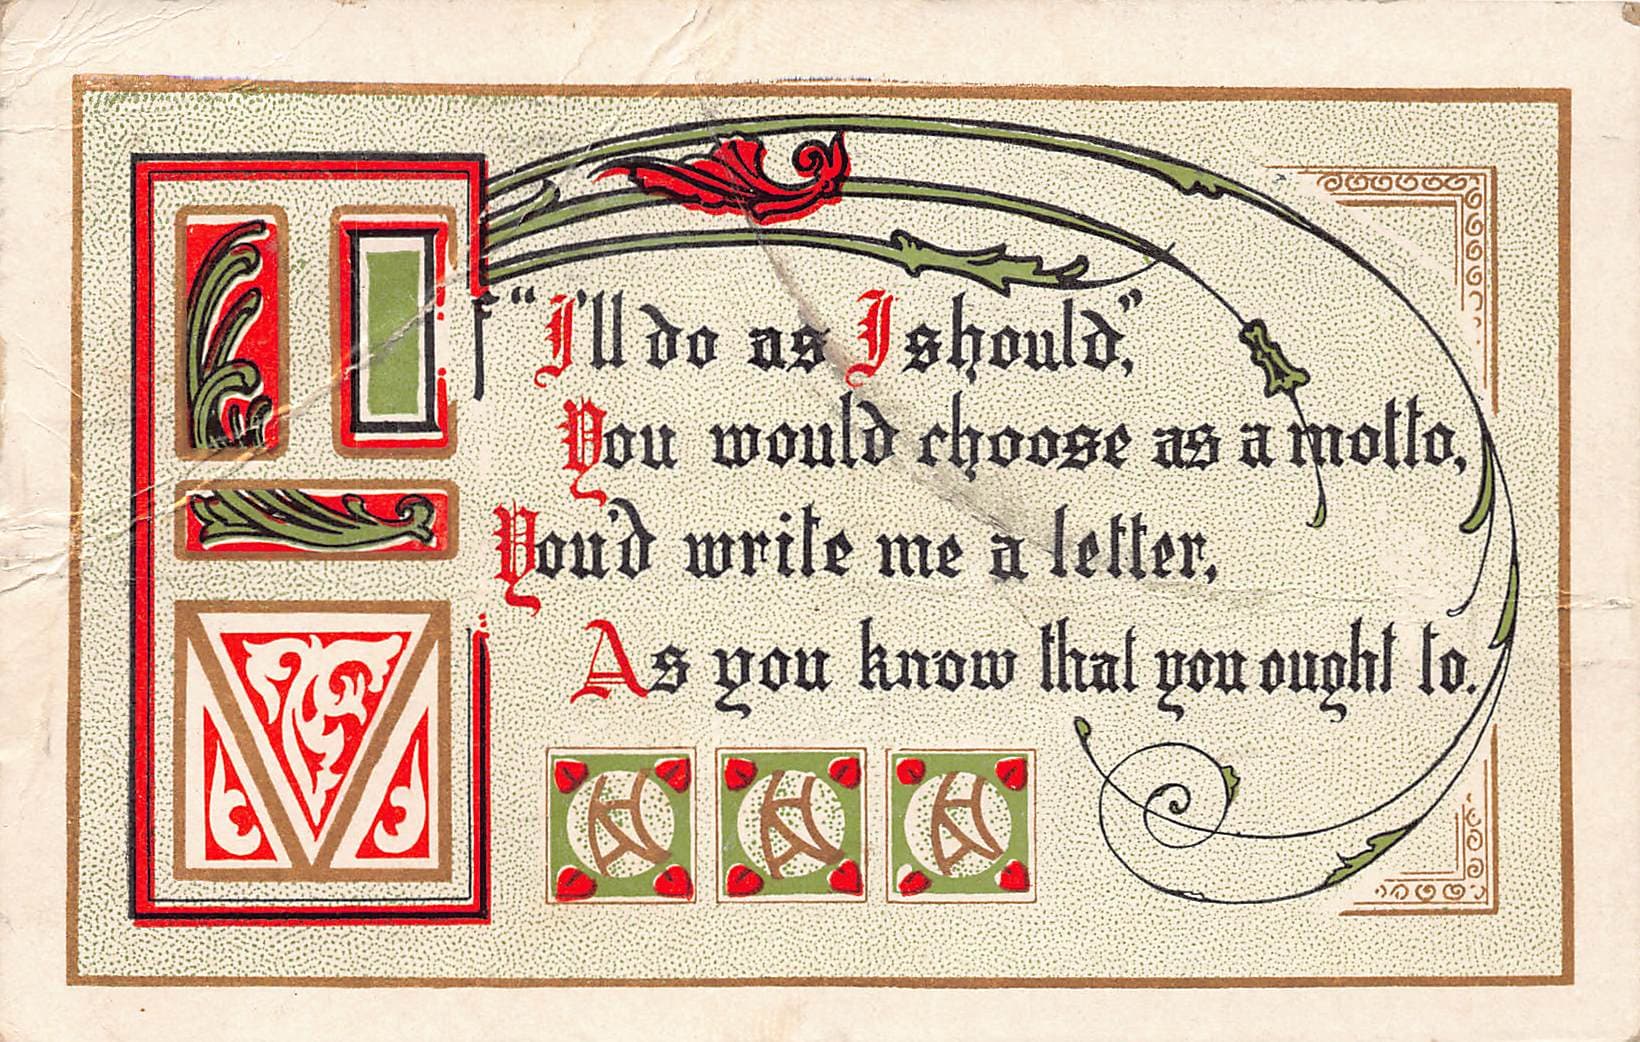 If "I'll do as I should,"
You would choose as a motto,
You'd write me a letter,
As you know that you ought to.